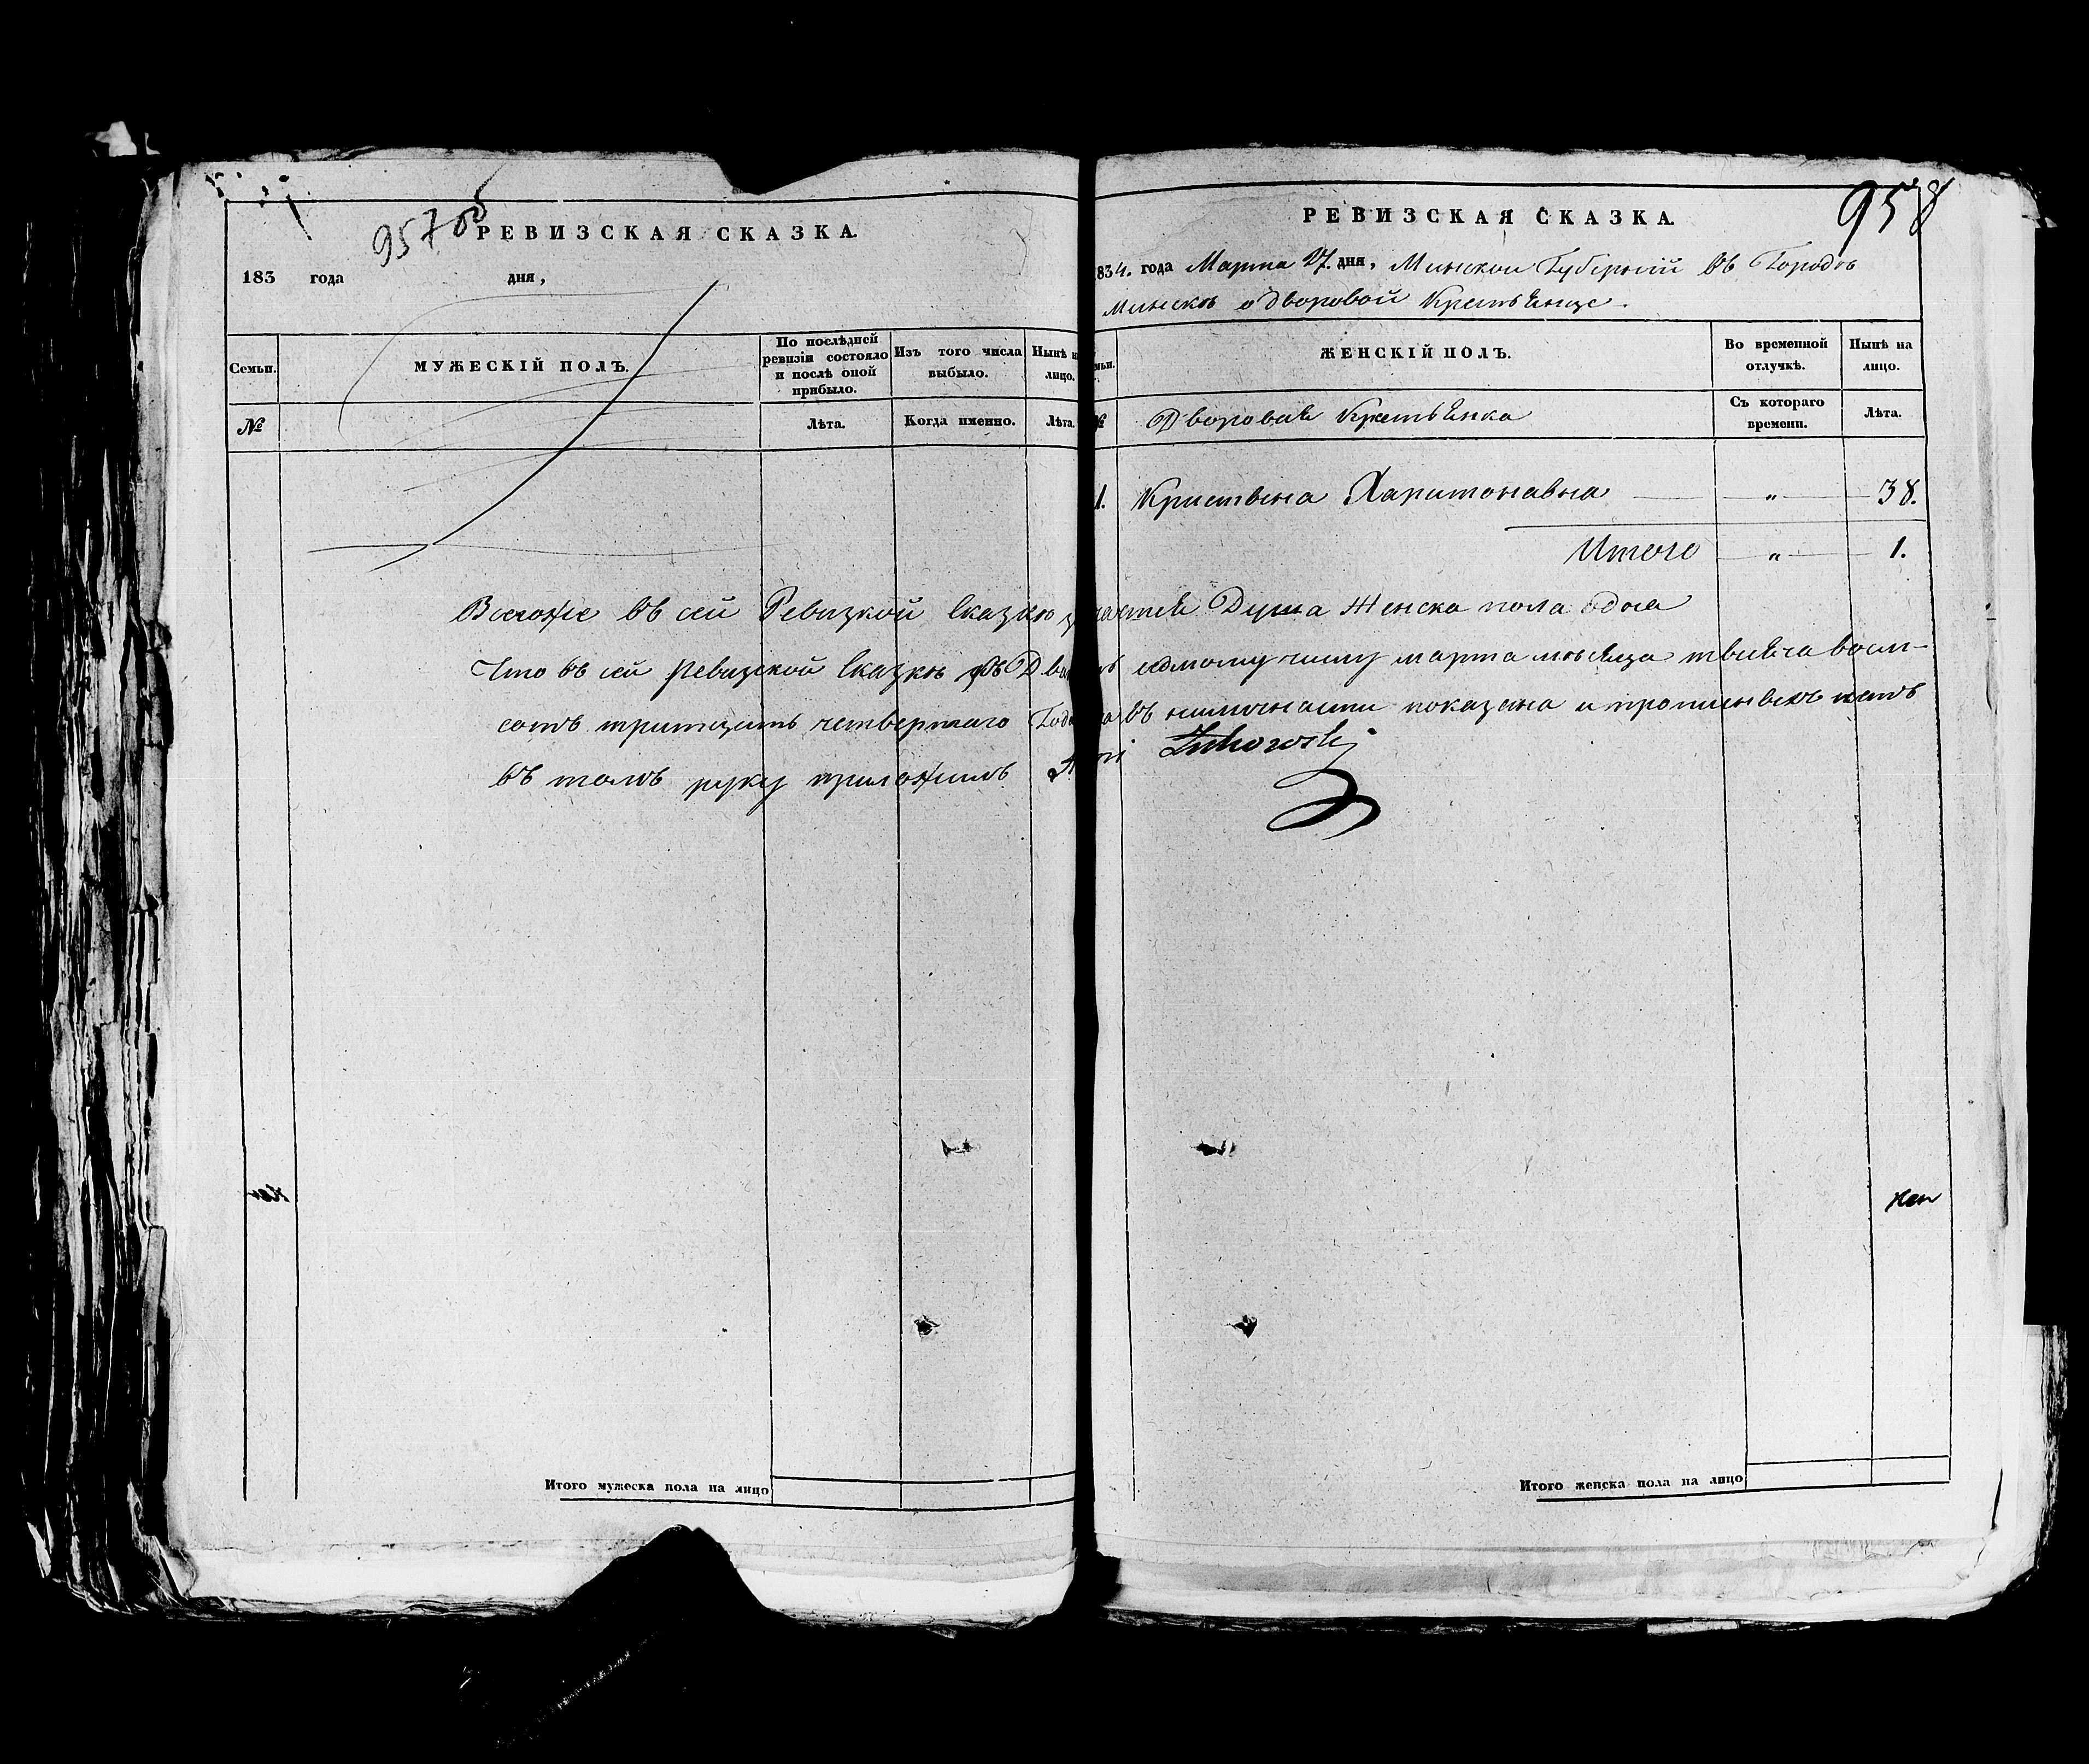 957 об
РЕВИЗСКАЯ СКАЗКА.
183 года дня,
Семьи.
МУЖЕСКІЙ ПОЛЪ.
По послѣдней ревизіи состояло и послѣ оной прибыло.
Изъ того числа выбыло.
Нынѣ на лицо.
№
Лѣта.
Когда именно.
Лѣта.
958
РЕВИЗСКАЯ СКАЗКА.
834. года Марта 27. дня, Минской Губерніи въ Городѣ
Минскѣ о дворовой Крестьянце.
мьи.
ЖЕНСКІЙ ПОЛЪ.
Во временной отлучкѣ.
Нынѣ на лицо.
№
Дворовая Крестьянка
Съ котораго времени.
Лѣта.
1. Кристына Харитонавна — „ — 38.
Итого — „ — 1.
Всегоже въ сей Ревизкой сказке Душа Женска пола одна
Что въ сей Ревизской сказкѣ седмому числу марта мѣсяца тысяча восм-
сотъ тритцать четвертаго Года въ показана и нетъ
въ томъ руку приложилъ
Итого мужеска пола на лицо
Итого женска пола на лицо